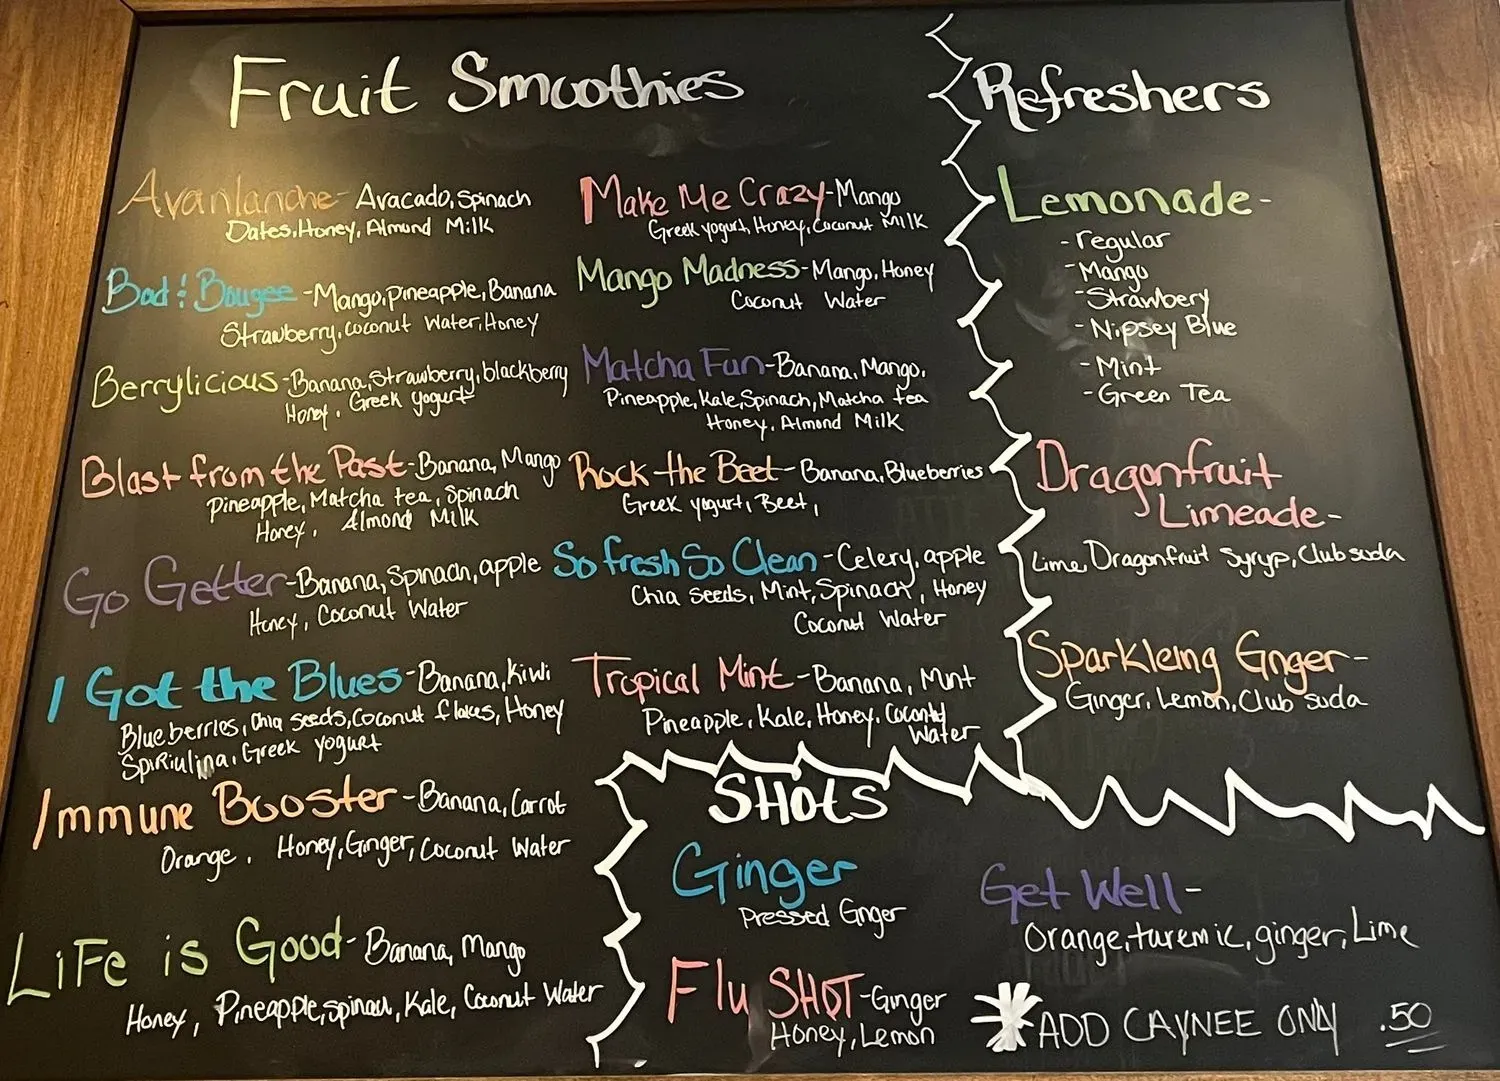 Fruit Smoothies
Avanlanche - Avacado, Spinach
Dates, Honey, Almond Milk
Bad & Bougee - Mango, Pineapple, Banana
Strawberry, Coconut Water, Honey
Berrylicious - Banana, Strawberry, blackberry
Honey, Greek yogurt
Blast from the Past - Banana, Mango
Pineapple, Matcha tea, Spinach
Honey, Almond Milk
Go Getter - Banana, Spinach, apple
Honey, Coconut Water
I Got the Blues - Banana, Kiwi
Blueberries, Chia seeds, Coconut flakes, Honey
Spiriulina, Greek yogurt
Immune Booster - Banana, Carrot
Orange, Honey, Ginger, Coconut Water
Life is Good - Banana, Mango
Honey, Pineapple, Spinach, Kale, Coconut Water
Make Me Crazy - Mango
Greek yogurt, Honey, Coconut Milk
Mango Madness - Mango, Honey
Coconut Water
Matcha Fun - Banana, Mango,
Pineapple, Kale, Spinach, Matcha tea
Honey, Almond Milk
Rock the Beet - Banana, Blueberries
Greek yogurt, Beet,
So Fresh So Clean - Celery, apple
Chia Seeds, Mint, Spinach, Honey
Coconut Water
Tropical Mint - Banana, Mint
Pineapple, Kale, Honey, Coconut
Water
Refreshers
Lemonade -
- regular
- Mango
- Strawbery
- Nipsey Blue
- Mint
- Green Tea
Dragonfruit
Limeade -
Lime, Dragonfruit Syryp, Club soda
Sparkleing Gnger -
Ginger, Lemon, Club soda
SHOTS
Ginger
Pressed Gnger
Flu SHOT - Ginger
Honey, Lemon
Get Well -
Orange, turemic, ginger, Lime
* ADD CAYNEE ONLY .50